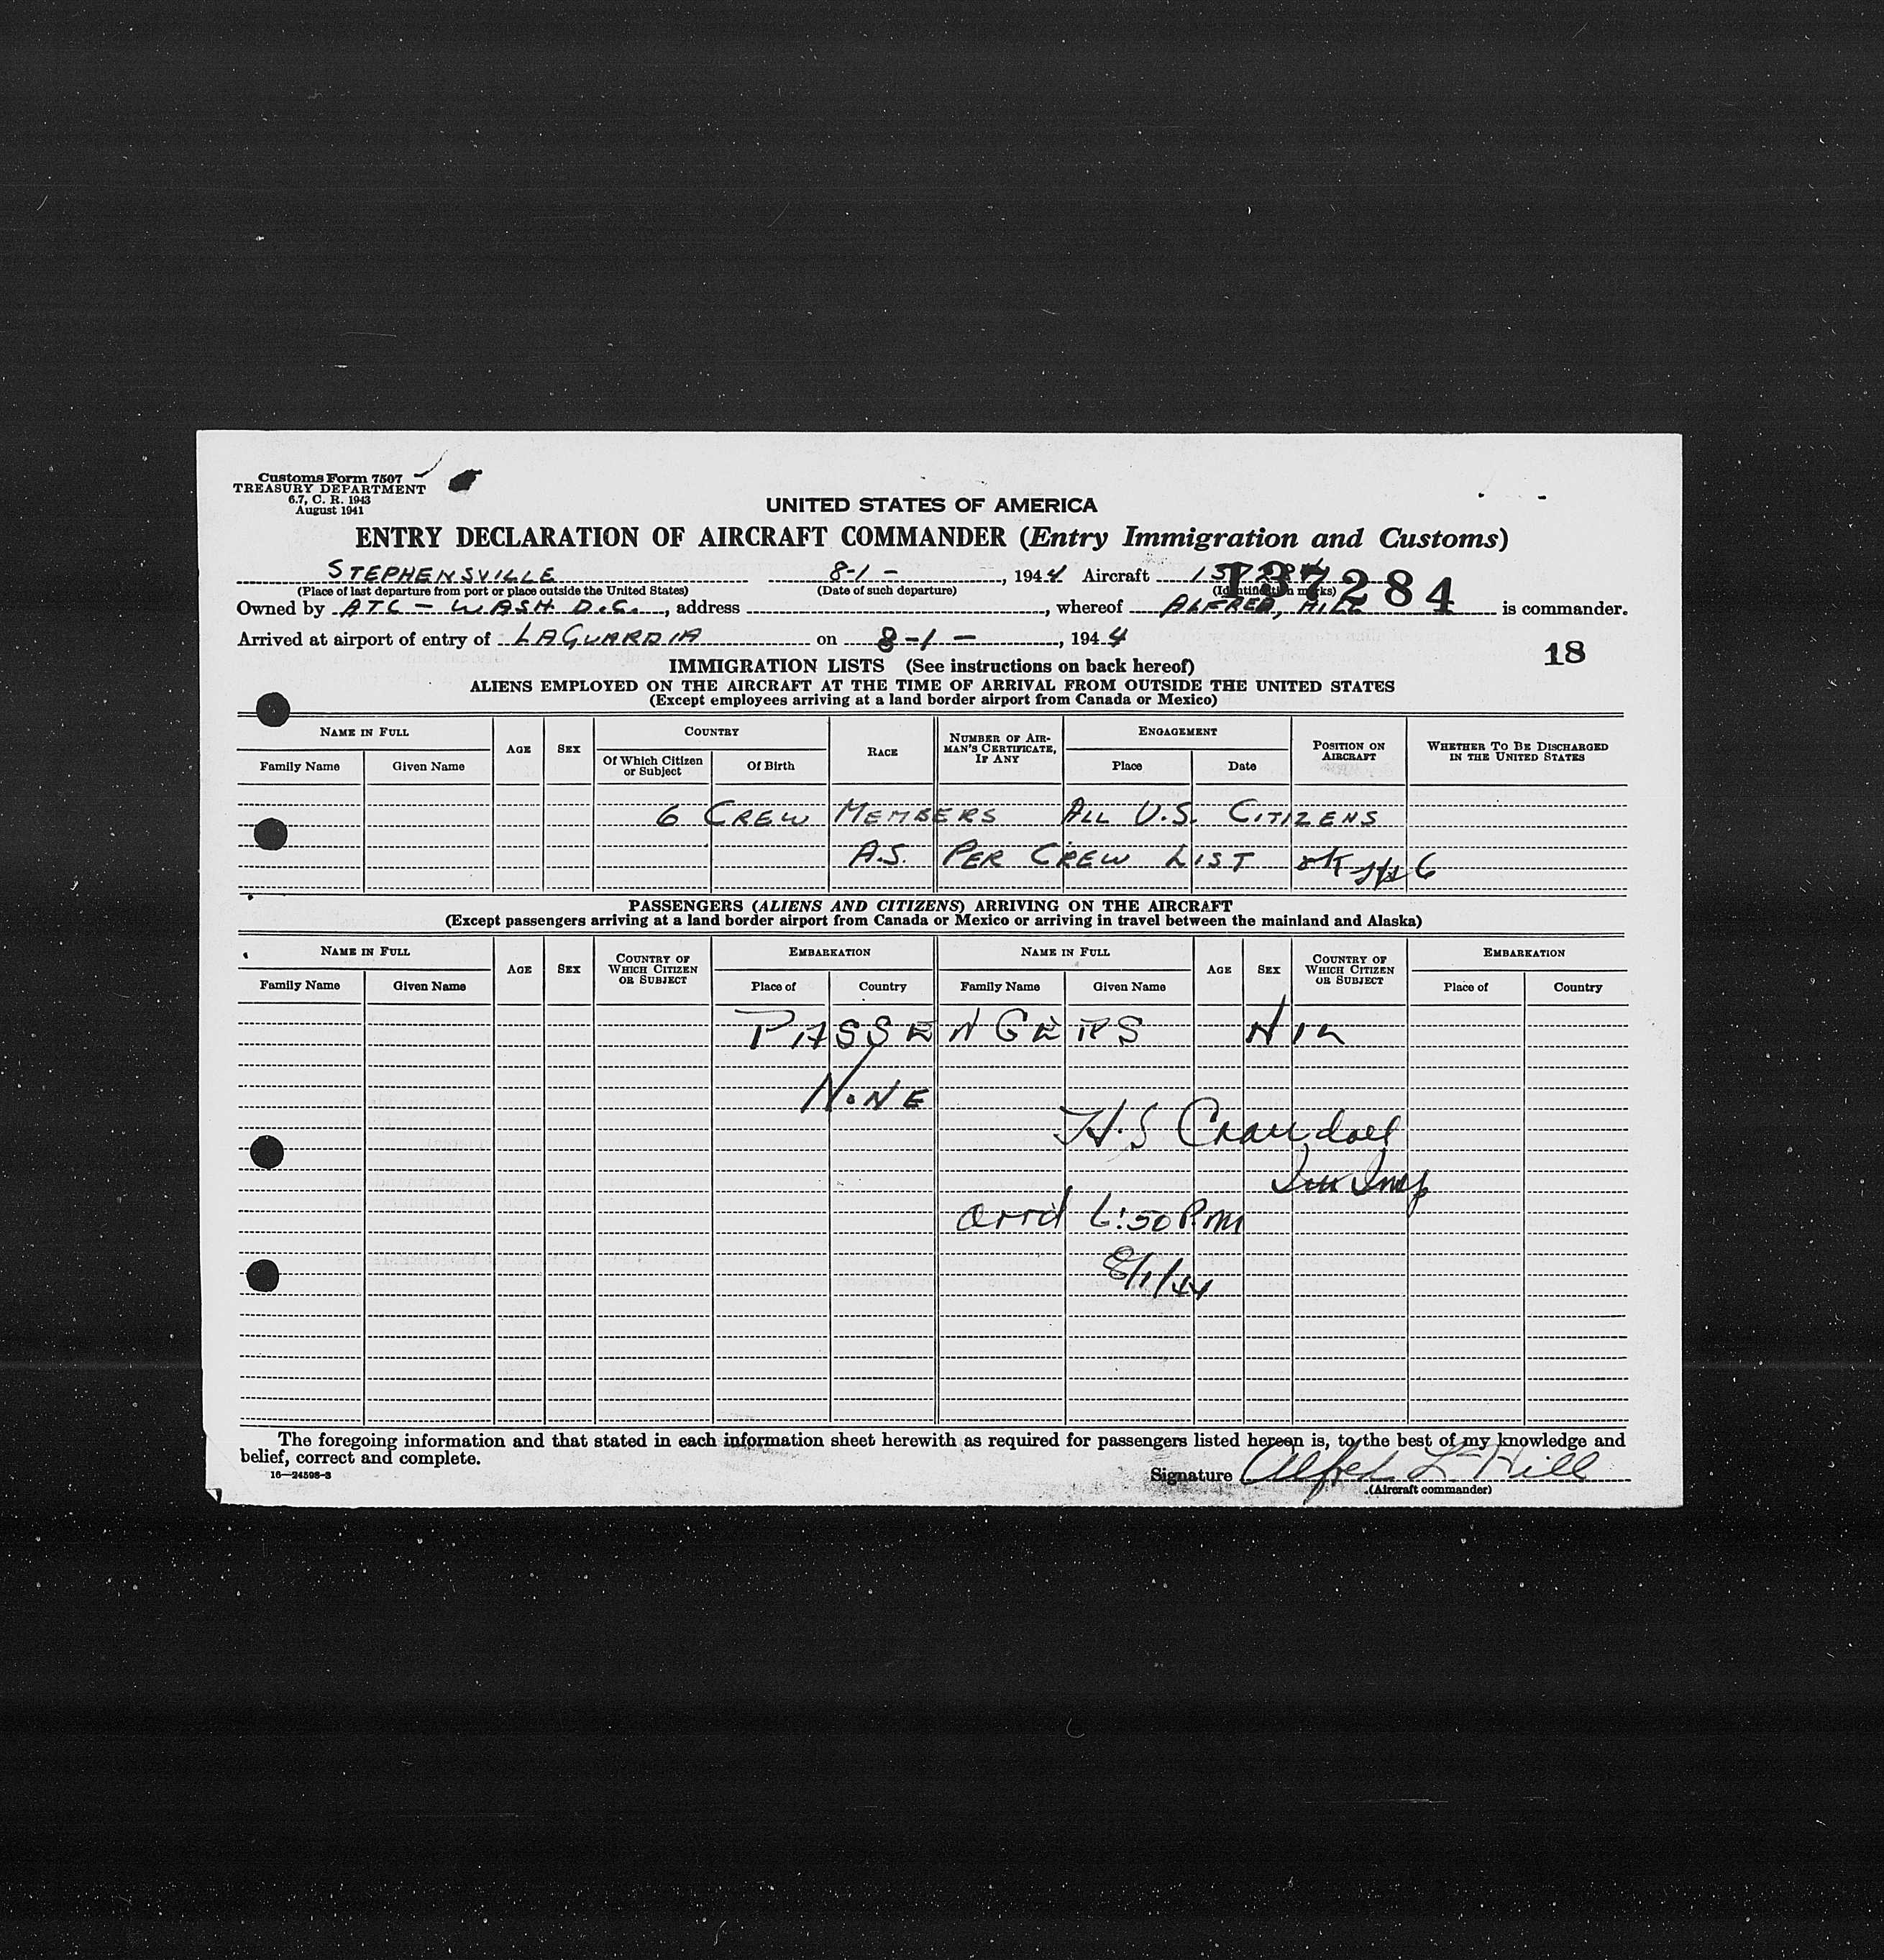 Customs Form 7507
TREASURY DEPARTMENT
6.7, C. R. 1943
August 1941
UNITED STATES OF AMERICA
ENTRY DECLARATION OF AIRCRAFT COMMANDER (Entry Immigration and Customs)
STEPHENSVILLE 8-1-, 1944 Aircraft
137284
(Place of last departure from port or place outside the United States) (Date of such departure) (Identification marks)
Owned by ATC - WASH. D.C., address , whereof ALFRED, HILL is commander.
Arrived at airport of entry of LAGUARDIA on 8-1-, 1944
18
IMMIGRATION LISTS (See instructions on back hereof)
ALIENS EMPLOYED ON THE AIRCRAFT AT THE TIME OF ARRIVAL FROM OUTSIDE THE UNITED STATES
(Except employees arriving at a land border airport from Canada or Mexico)
NAME IN FULL AGE SEX COUNTRY RACE NUMBER OF AIRMAN'S CERTIFICATE, IF ANY ENGAGEMENT POSITION ON AIRCRAFT WHETHER TO BE DISCHARGED IN THE UNITED STATES
Family Name Given Name Of Which Citizen or Subject Of Birth Place Date
6 CREW MEMBERS ALL U.S. CITIZENS
A.S. PER CREW LIST OK 6
PASSENGERS (ALIENS AND CITIZENS) ARRIVING ON THE AIRCRAFT
(Except passengers arriving at a land border airport from Canada or Mexico or arriving in travel between the mainland and Alaska)
NAME IN FULL AGE SEX COUNTRY OF WHICH CITIZEN OR SUBJECT EMBARKATION NAME IN FULL AGE SEX COUNTRY OF WHICH CITIZEN OR SUBJECT EMBARKATION
Family Name Given Name Place of Country Family Name Given Name Place of Country
PASSENGERS NIL
NONE
H.S Crandall
Imm Insp
arrd 6:50 P.M
8/1/44
The foregoing information and that stated in each information sheet herewith as required for passengers listed hereon is, to the best of my knowledge and
belief, correct and complete.
16—24598-3
Signature Alfred L Hill
(Aircraft commander)